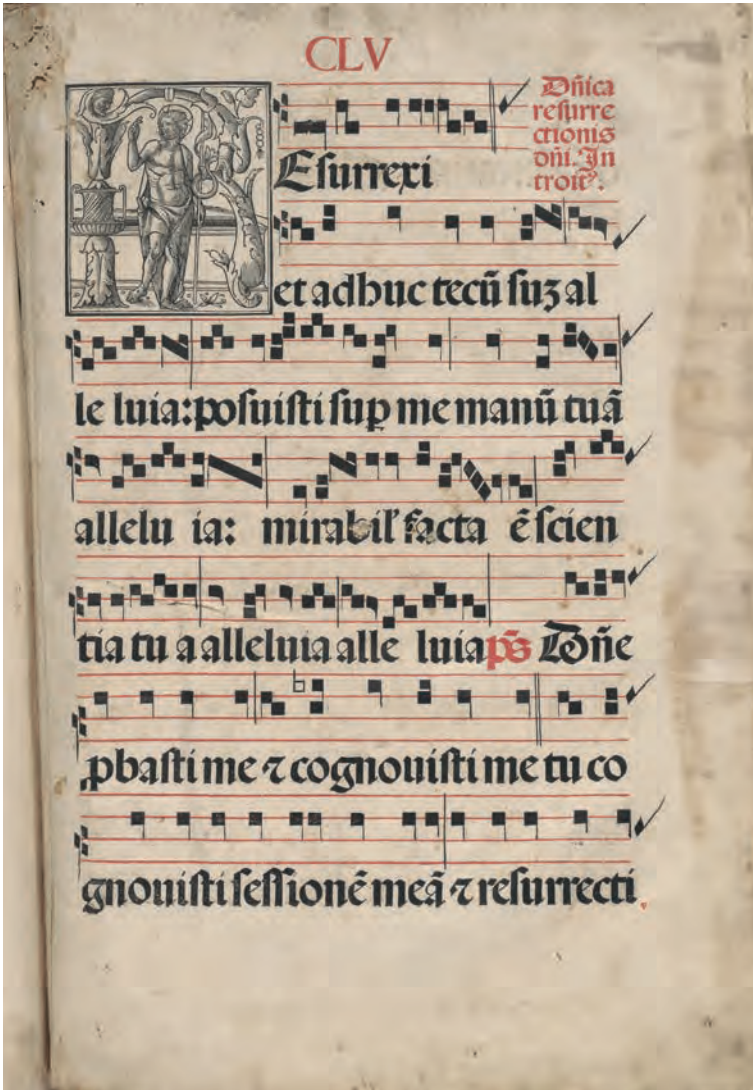 CLV
Dñica
resurre
ctionis
dñi. In
troitꝰ.
Esurrexi
et adhuc tecū suꝫ al
le luia: posuisti suꝑ me manū tuā
allelu ia: mirabil' facta ē scien
tia tu a alleluia alle luia p̄s Dñe
ꝓbasti me ⁊ cognouisti me tu co
gnouisti sessionē meā ⁊ resurrecti